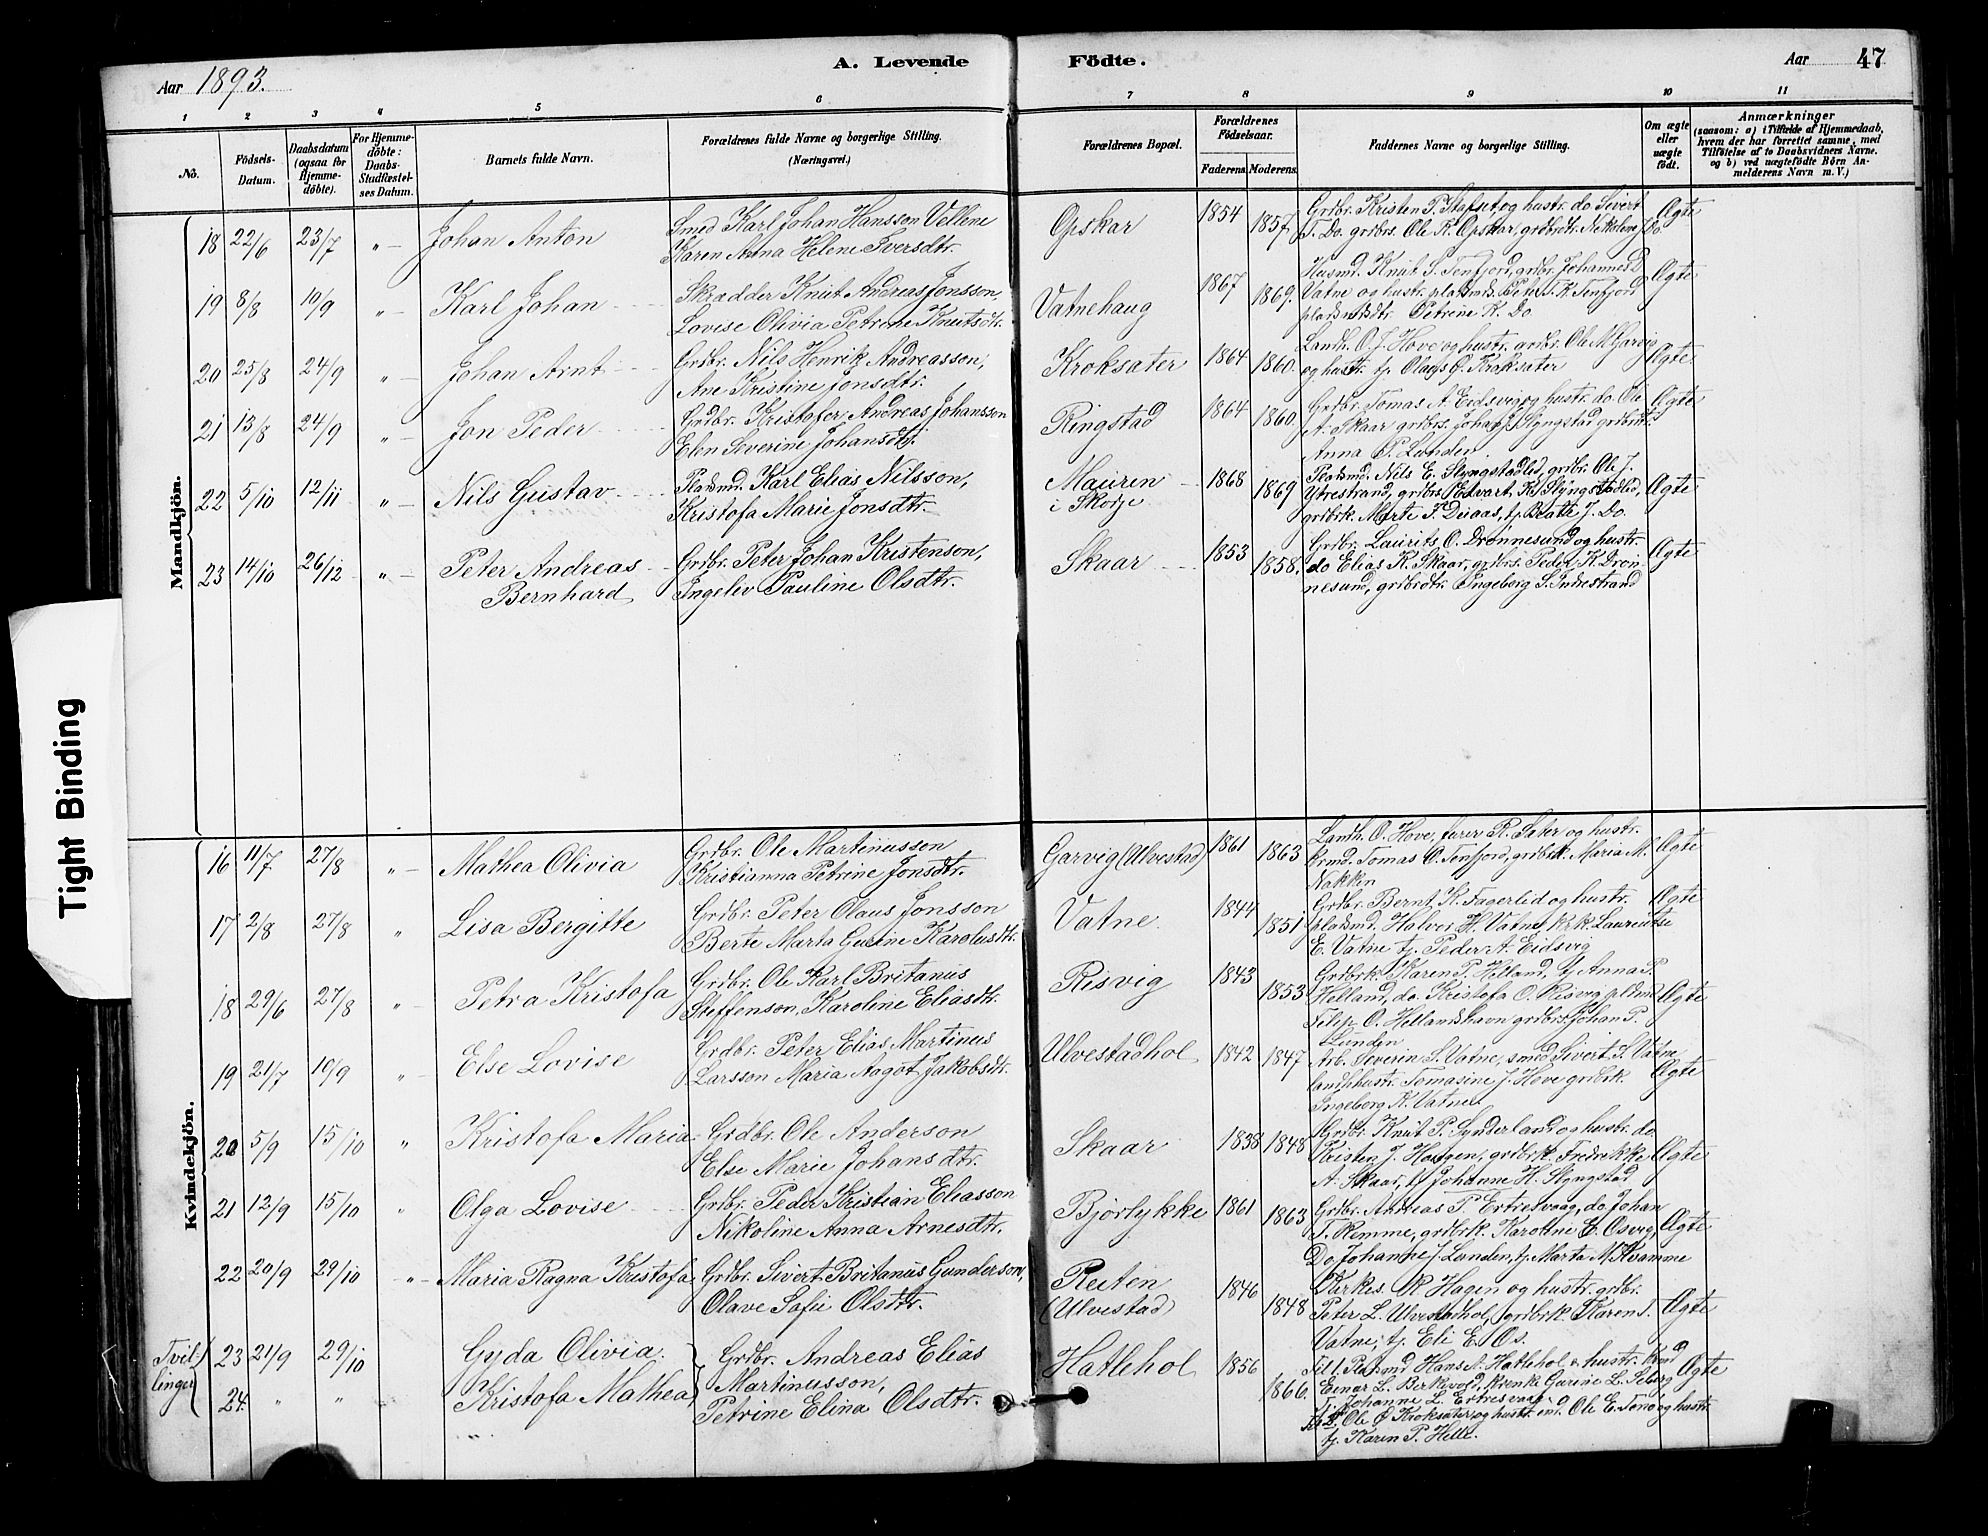 Aar 1893.
A. Levende Födte.
Aar 47
1 2 3 4 5 6 7 8 9 10 11
No.
Födsels-Datum.
Daabsdatum (ogsaa for Hjemmedöbte).
For Hjemmedöbte: Daabs-Stadfæstelses Datum.
Barnets fulde Navn.
Forældrenes fulde Navne og borgerlige Stilling. (Næringsvei.)
Forældrenes Bopæl.
Forældrenes Födselsaar.
Faderens Moderens
Faddernes Navne og borgerlige Stilling.
Om ægte eller uægte födt.
Anmærkninger
(saasom: a) i Tilfælde af Hjemmedaab, hvem der har forrettet samme, med Tilföielse af to Daabsvidners Navne. og b) ved uægtefödte Börn Anmelderens Navn m. V.)
Mandkjön.
18 22/6 23/7 „ — Johan Anton
Smed Karl Johan Hansson Vellene
Karen Anna Helene Iversdtr.
Opskar 1854 1857.
Grdbr. Kristen P. Stafset, og hustr. do Sivert
T. Do. grdbrs. Ole K. Opskar, grdbrdtr. Nikoline J. Do.
Ægte
19 8/8 10/9 „ — Karl Johan
Skrædder Knut Andreas Jonsson,
Lovise Olivia Petrine Knutsdtr.
Vatnehaug 1867 1869.
Husmd. Knut S. Tenfjord, grdbr. Johannes D
Vatne og hustr. pladsmds. Peter T. K. Tenfjord
pladsmdsdtr. Petrine K. Do
Ægte
20 25/8 24/9 „ — Johan Arnt
Grdbr. Nils Henrik Andreasson,
Ane Kristine Jonsdtr.
Kroksater 1864 1860.
Landh. O. J. Hove og hustr. grdbr. Ola M. Garvig
og hustr. tj. Olaus O. Kroksater
Ægte
21 13/8 24/9 „ — Jon Peder
Grdbr. Kristofer Andreas Johansson
Elen Severine Johansdtr.
Ringstad 1864 1860.
Grdbr. Tomas A. Eidsvig og hustr. do. Ole
A. Skaar grdbrs. Johan J. Slyngstad grdbrdtr.
Anna P. Lunden.
Ægte
22 5/10 12/11 „ — Nils Gustav
Pladsmd. Karl Elias Nilsson,
Kristofa Marie Jonsdtr.
Mauren
i Skodje
1868 1869
Pladsmd. Nils E. Slyngstadlid, grdbr. Ole J.
Ytrestrand, grdbrs. Edvart K. Slyngstadlid,
grdbrk. Marte T. Disaas, tj. Beate J. Do.
Ægte
23 14/10 26/12 „ — Peter Andreas
Bernhard
Grdbr. Peter Johan Kristenson,
Ingelev Pauline Olsdtr.
Skaar 1853 1858.
Grdbr. Laurits O. Drønnesund og hustr.
do Elias K. Skaar, grdbrs. Peder K. Drøn-
nesund, grdbrdtr. Ingeborg S. Indrestrand
Ægte
Kvindekjön.
16 11/7 27/8 „ — Mathea Olivia
Grdbr. Ole Martinusson
Kristianna Petrine Jonsdtr.
Garvig (Ulvestad) 1861 1863
Landh. O. Hove, furer R. Sæter og hustr.
Krmd. Tomas O. Tenfjord, grdbrk. Maria M.
Nakken
Ægte
17 2/8 27/8 „ Lisa Bergitte
Grdbr. Peter Olaus Jonsson
Berte Marta Gurine Karolusdtr.
Vatne. 1844 1851
Grdbr. Bernt H. Fagerlid og hustr.
pladsmd. Halvor H. Vatne, k. k. Laurentse
E. Vatne tj. Peder A. Eidsvig
Ægte
18 29/6 27/8 „ Petra Kristofa
Grdbr. Ole Karl Britanus
Steffenson, Karoline Eliasdtr.
Risvig 1843 1853
Grdbrk. Karen P. Helland, tj. Anna P.
Helland, do. Kristofa O. Risvig pldsmd
Filip O. Hellandshavn grdbrs. Johan P.
Lunden
Ægte
19 21/7 10/9 „ Else Lovise
Grdbr. Peter Elias Martinus
Larsson Maria Aagot Jakobsdtr.
Ulvestadhol 1842 1847
Arb. Severin S. Vatne, smed Sivert S. Vatne
landhhustr. Tomasine J. Hove grdbrk.
Ingeborg K. Vatne
Ægte
20 5/9 15/10 „ Kristofa Maria
Grdbr. Ole Anderson
Else Marie Johansdtr.
Skaar 1838 1848
Grdbr. Knut P. Synderland og hustr. do.
Kristen J. Haugen, grdbrk. Fredrikke
A. Skaar, tj. Johanne H. Slyngstad
Ægte
21 12/9 15/10 „ Olga Lovise
Grdbr. Peder Kristian Eliasson
Nikoline Anna Arnesdtr.
Bjørlykke 1861 1863
Grdbr. Andreas P. Ertresvaag, do. Johan
T. Remme, grdbrk. Karoline O. Osvig,
Do. Johanne J. Lunden, tj. Marta M. Kvamme
Ægte
22 20/9 29/10 „ — Maria Ragna Kristofa
Grdbr. Sivert Britanus Gunderson,
Olave Sofie Olsdtr.
Reiten
(Ulvestad)
1846 1848
Kirkes. K. Hagen og hustr. grdbr.
Peter L. Ulvestadhol, grdbrk. Karen I.
Vatne, tj. Eli E. Os.
Ægte
Tvil-
linger
23 21/9 29/10 Gyda Olivia.
24. „ „ Kristofa Mathea
Grdbr. Andreas Elias
Martinusson,
Petrine Elina Olsdtr.
Hatlehol 1856 1866.
Til 1. Pladsmd. Hans A. Hatlehol & hustr.
Einar L. Birkevold, Gurine L.
T. Johanne L. Ertresvaag.
Til 2. Ole O. Kroksater og hustr. Ole E. Tenno og hustr.
tj. Karen P. Helle.
Ægte
Tight Binding